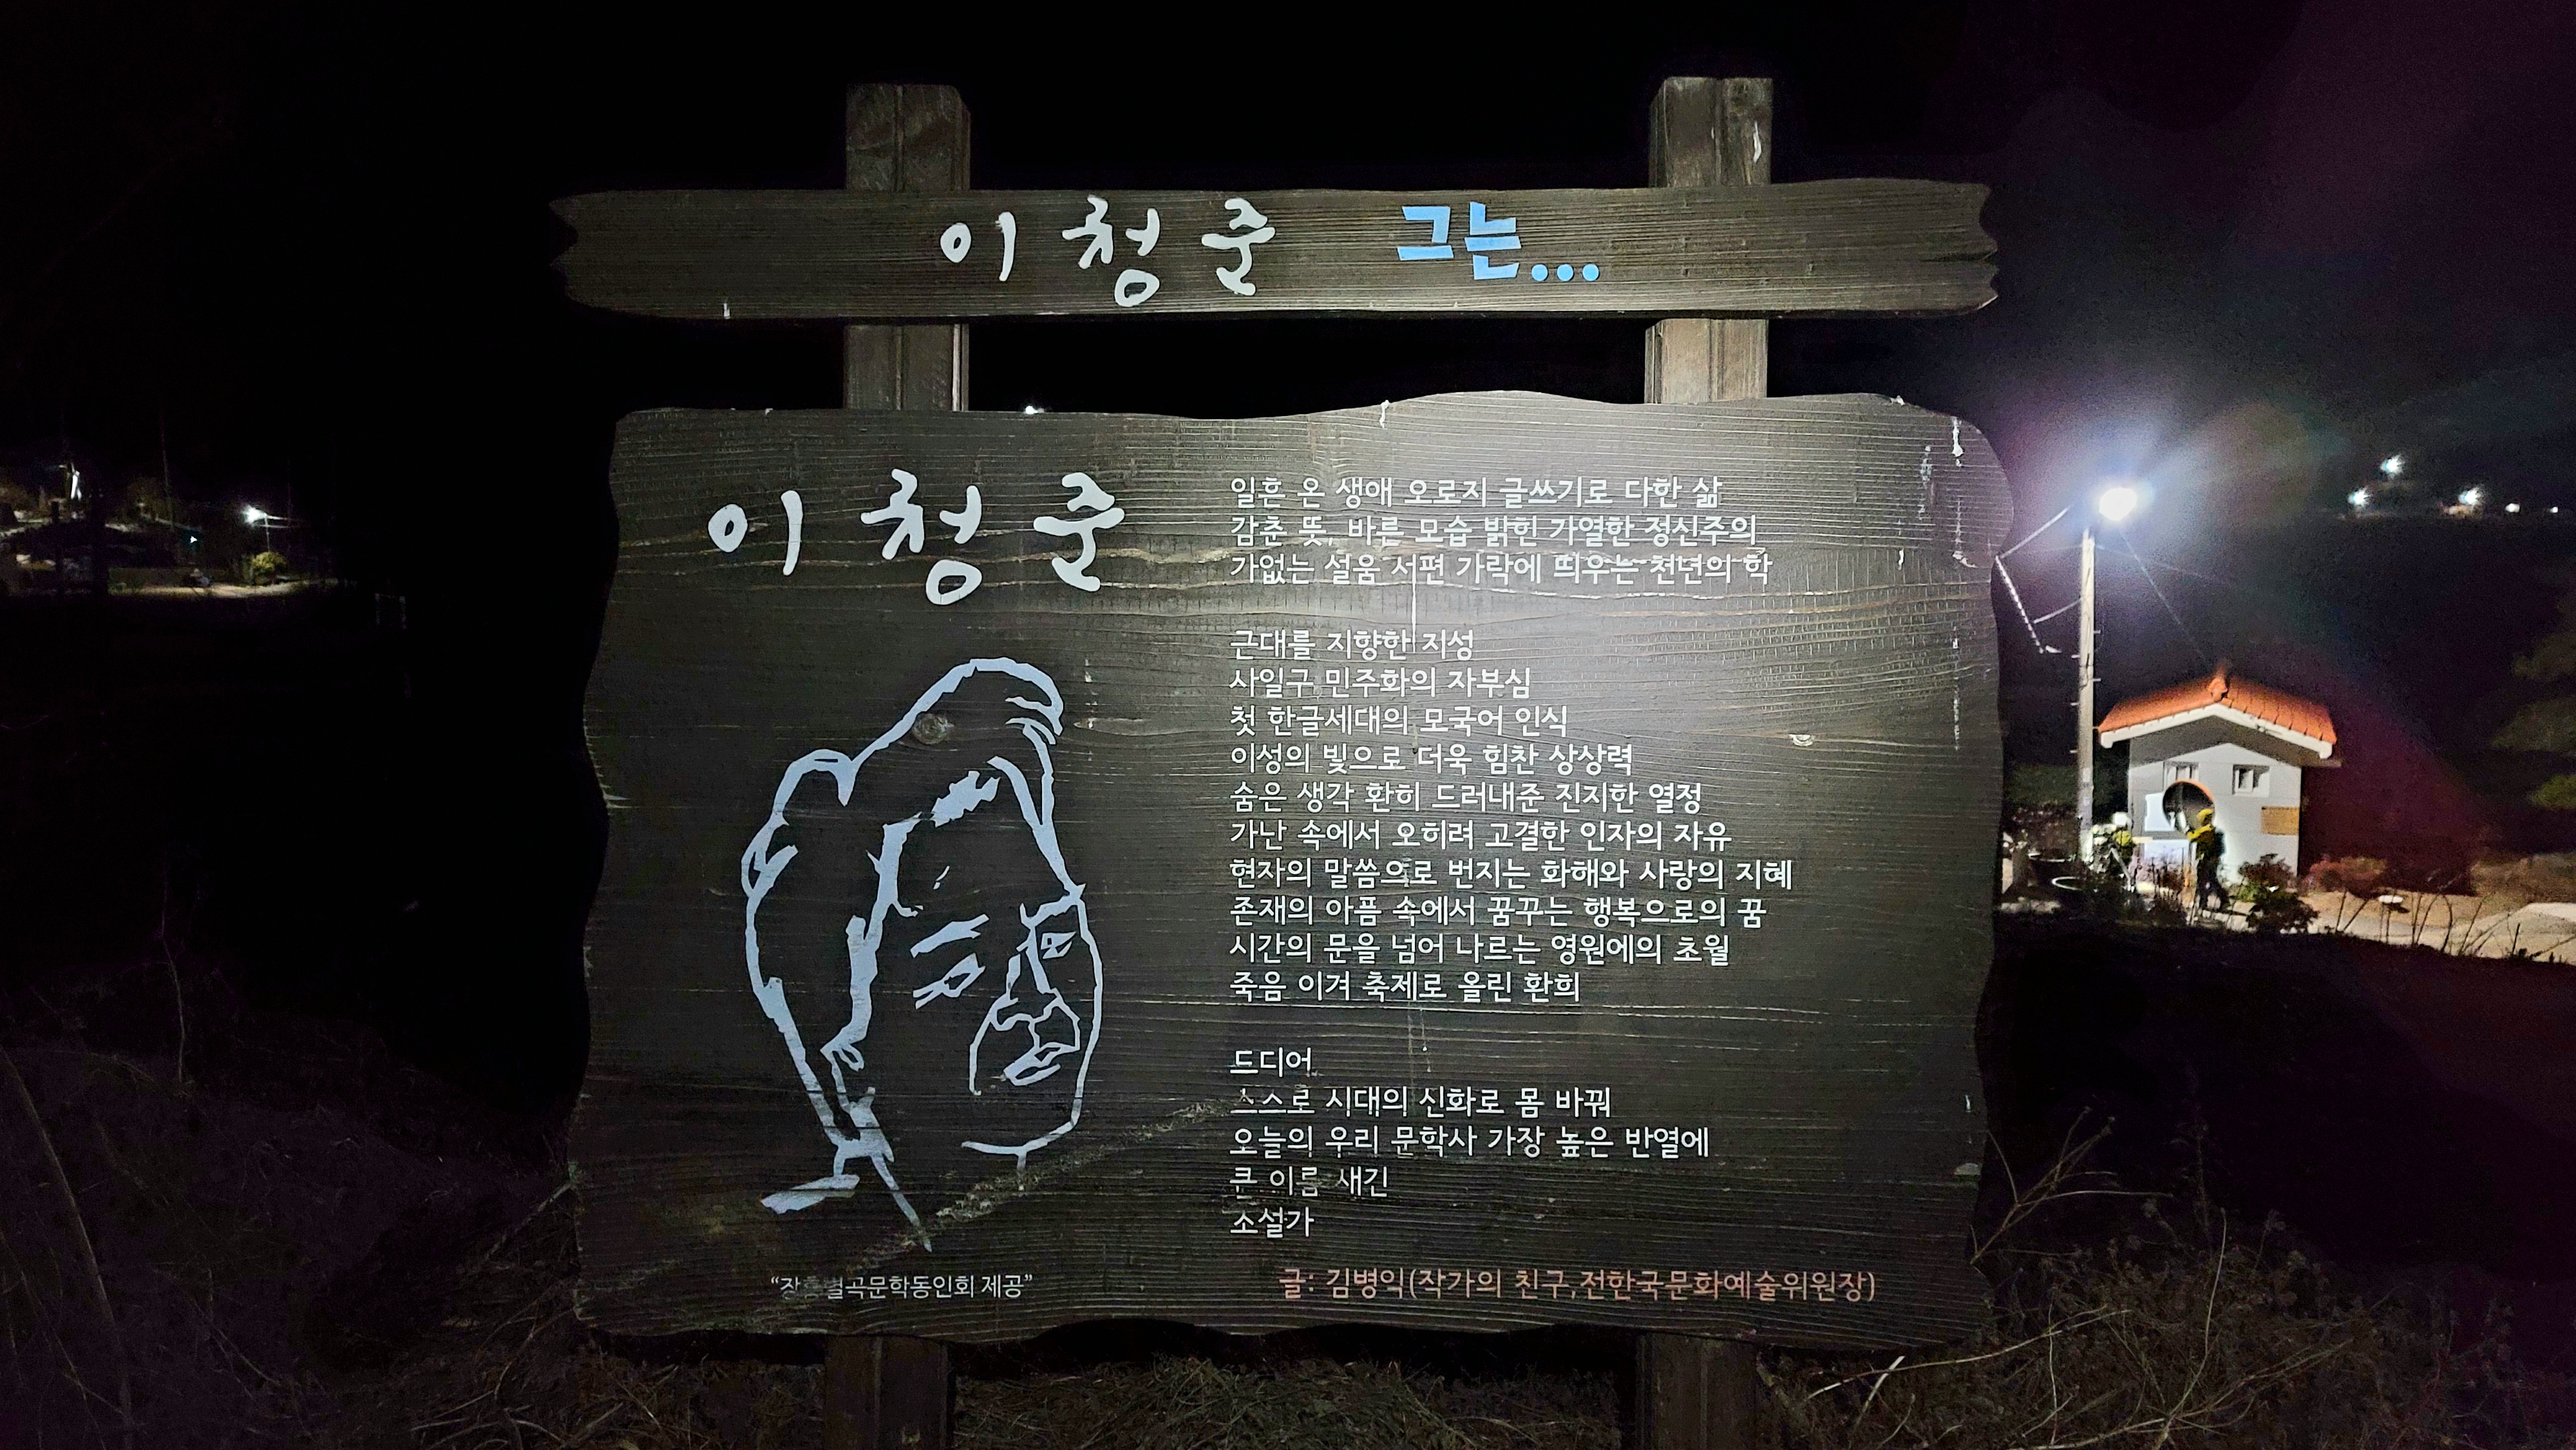 이청준 그는...
이청준
일흔 온 생애 오로지 글쓰기로 다한 삶
감춘 뜻, 바른 모습 밝힌 가열한 정신주의
가없는 설움 서편 가락에 띄우는 천년의 학
근대를 지향한 지성
사일구 민주화의 자부심
첫 한글세대의 모국어 인식
이성의 빛으로 더욱 힘찬 상상력
숨은 생각 환히 드러내준 진지한 열정
가난 속에서 오히려 고결한 인자의 자유
현자의 말씀으로 번지는 화해와 사랑의 지혜
존재의 아픔 속에서 꿈꾸는 행복으로의 꿈
시간의 문을 넘어 나르는 영원에의 초월
죽음 이겨 축제로 올린 환희
드디어
스스로 시대의 신화로 몸 바꿔
오늘의 우리 문학사 가장 높은 반열에
큰 이름 새긴
소설가
“장흥별곡문학동인회 제공”
글: 김병익(작가의 친구,전한국문화예술위원장)